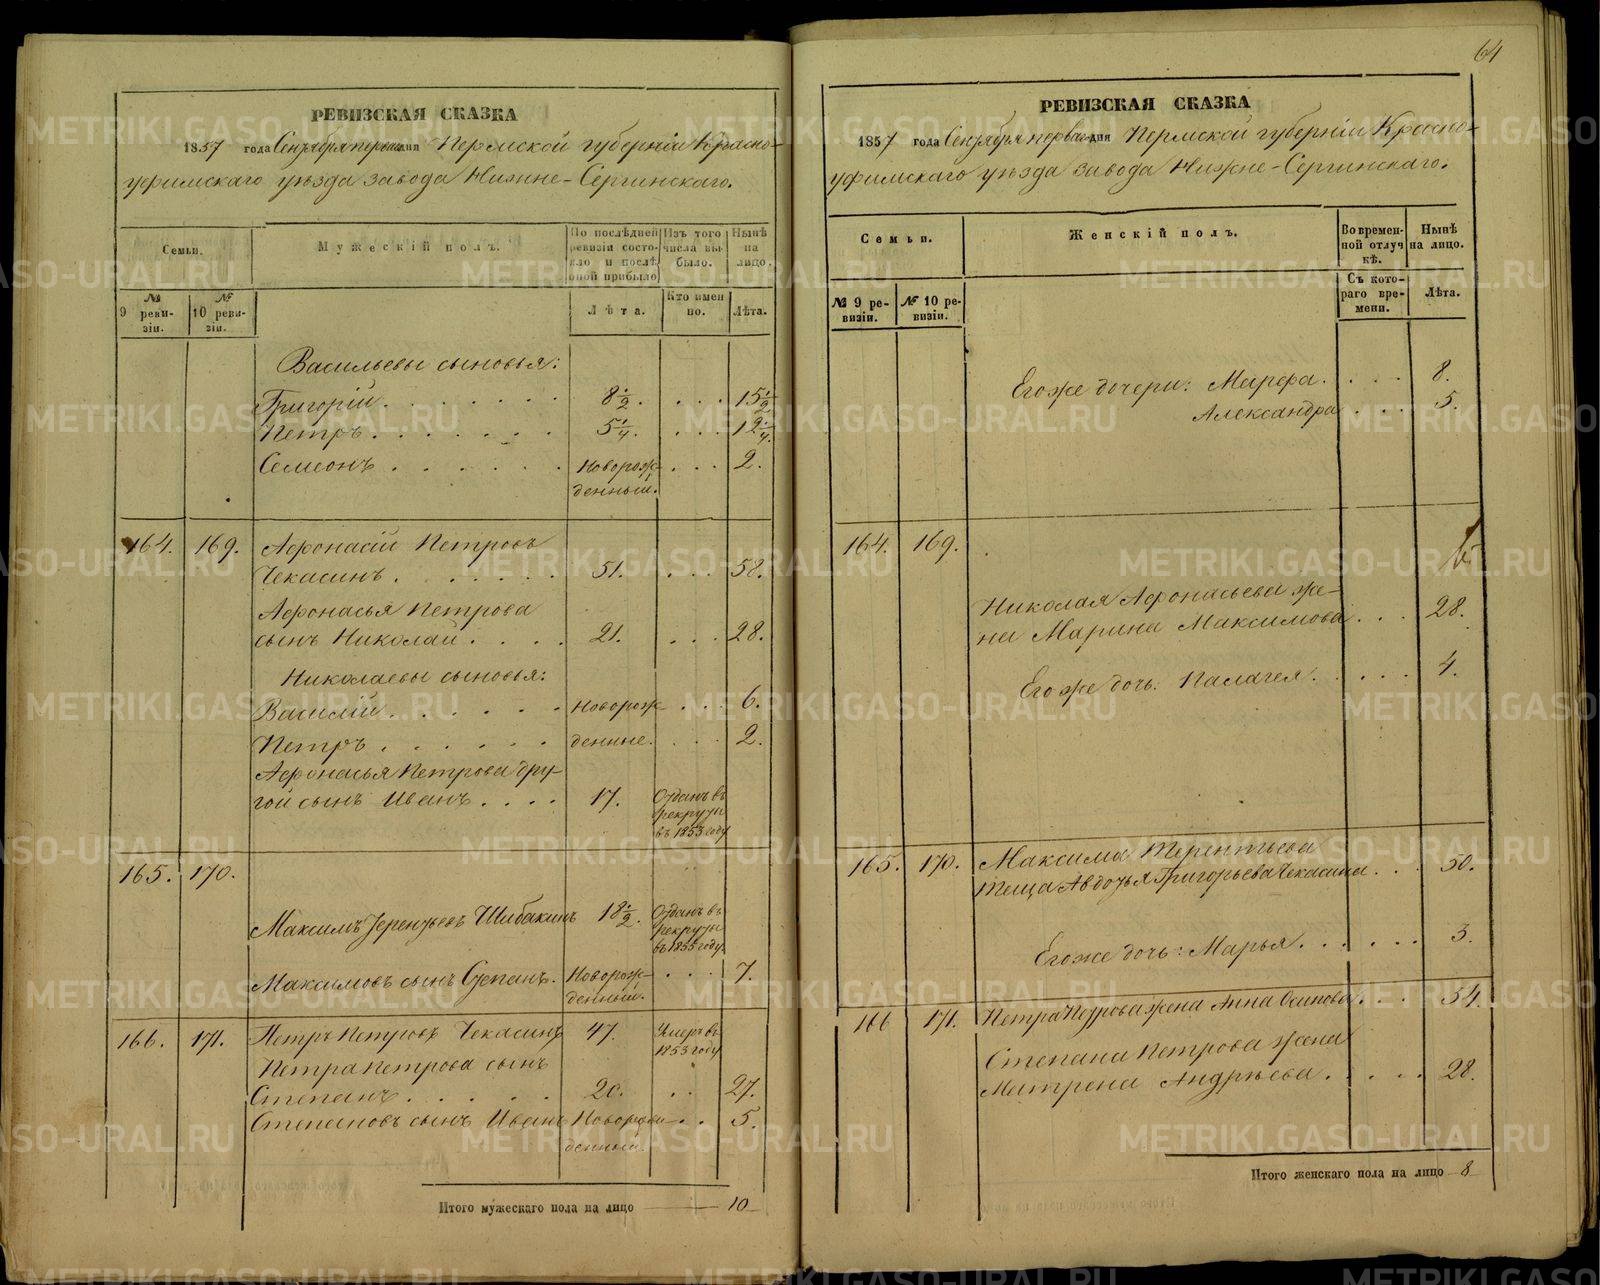 РЕВИЗСКАЯ СКАЗКА
1857 года Сентября перваго дня Пермской губерніи Красно-
уфимскаго уѣзда завода Нижне-Сергинскаго.
Семьи.
Мужескій полъ.
По послѣдней ревизіи состояло и послѣ оной прибыло
Изъ того числа выбыло.
Нынѣ на лицо.
№ 9 ревизіи.
№ 10 ревизіи.
Лѣта.
Кто именно.
Лѣта.
Васильевы сыновья:
Григорій . . . 8 1/2 . . . . 15 1/2
Петръ . . . 5 1/4. . . . 12 1/4.
Семеонъ . . . Новорож- . . . 2.
денный.
164. 169. Афонасій Петровъ
Чекасинъ . . . 51. . . . 58.
Афонасья Петрова
сынъ Николай . . . 21. . . . 28.
Николаевы сыновья:
Василій . . . Новорож- . . . 6.
Петръ . . . денные. . . . 2.
Афонасья Петрова дру-
гой сынъ Иванъ . . . . 17. Отданъ въ
рекруты
въ 1853 году
165. 170.
Максимъ Терентьевъ Шибакинъ 18 1/2. Отданъ въ
рекруты
въ 1855 году.
Максимовъ сынъ Степанъ. Новорож- . . . 7.
денный.
166. 171. Петръ Петровъ Чекасинъ 47. Умеръ въ
1853 году
Петра Петрова сынъ
Степанъ . . . 20. . . 27.
Степановъ сынъ Иванъ Новорож- . . 5.
денный.
Итого мужескаго пола на лицо 10
64
РЕВИЗСКАЯ СКАЗКА
1857 года Сентября перваго дня Пермской губерніи Красно-
уфимскаго уѣзда завода Нижне-Сергинскаго.
Семьи.
Женскій полъ.
Во временной отлучкѣ.
Нынѣ на лицо.
№ 9 ревизіи.
№ 10 ревизіи.
Съ котораго времени.
Лѣта.
Егоже дочери: Марфа . . . . 8.
Александра . . . 5.
164. 169.
Николая Афонасьева же-
на Марина Максимова . . . 28.
Егоже дочь: Палагея . . . . . 4.
165. 170. Максима Терентьева
теща Авдотья Григорьева Чекасина . . . 50.
Егоже дочь: Марья . . . . . . 3.
166 171. Петра Петрова жена Анна Осипова . . . 54.
Степана Петрова жена
Матрена Андрѣева . . . . . 28.
Итого женскаго пола на лицо 8
METRIKI.GASO-URAL.RU